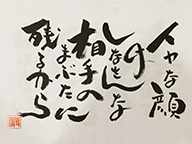 イヤな顔
の
しなさんな
相手の
まぶたに
残るから